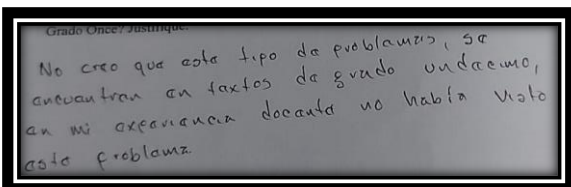 Grado Once? Justifique.
No creo que este tipo de problemas, se
encuentran en textos de grado undecimo,
en mi experiencia docente no había visto
este problema.